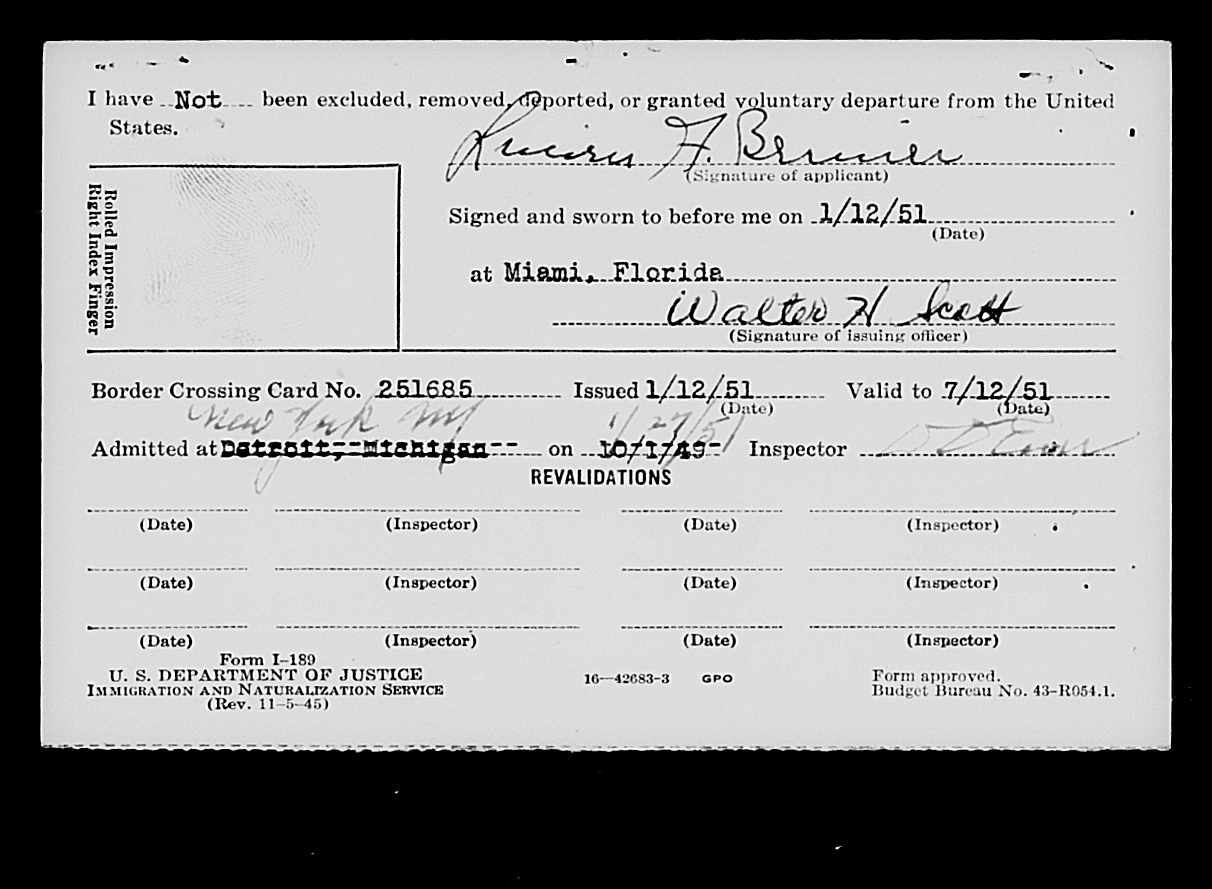 I have Not been excluded, removed, deported, or granted voluntary departure from the United
States.
F. Bernier
(Signature of applicant)
Rolled Impression
Right Index Finger
Signed and sworn to before me on 1/12/51
(Date)
at Miami, Florida
Walter H Scott
(Signature of issuing officer)
Border Crossing Card No. 251685 Issued 1/12/51 Valid to 7/12/51
(Date) (Date)
New York NY 1/27/51
Admitted at Detroit, Michigan -- on 10/1/49- Inspector
REVALIDATIONS
(Date) (Inspector) (Date) (Inspector)
(Date) (Inspector) (Date) (Inspector)
(Date) (Inspector) (Date) (Inspector)
Form I-189
U. S. DEPARTMENT OF JUSTICE
IMMIGRATION AND NATURALIZATION SERVICE
(Rev. 11-5-45)
16—42683-3 GPO
Form approved.
Budget Bureau No. 43-R054.1.